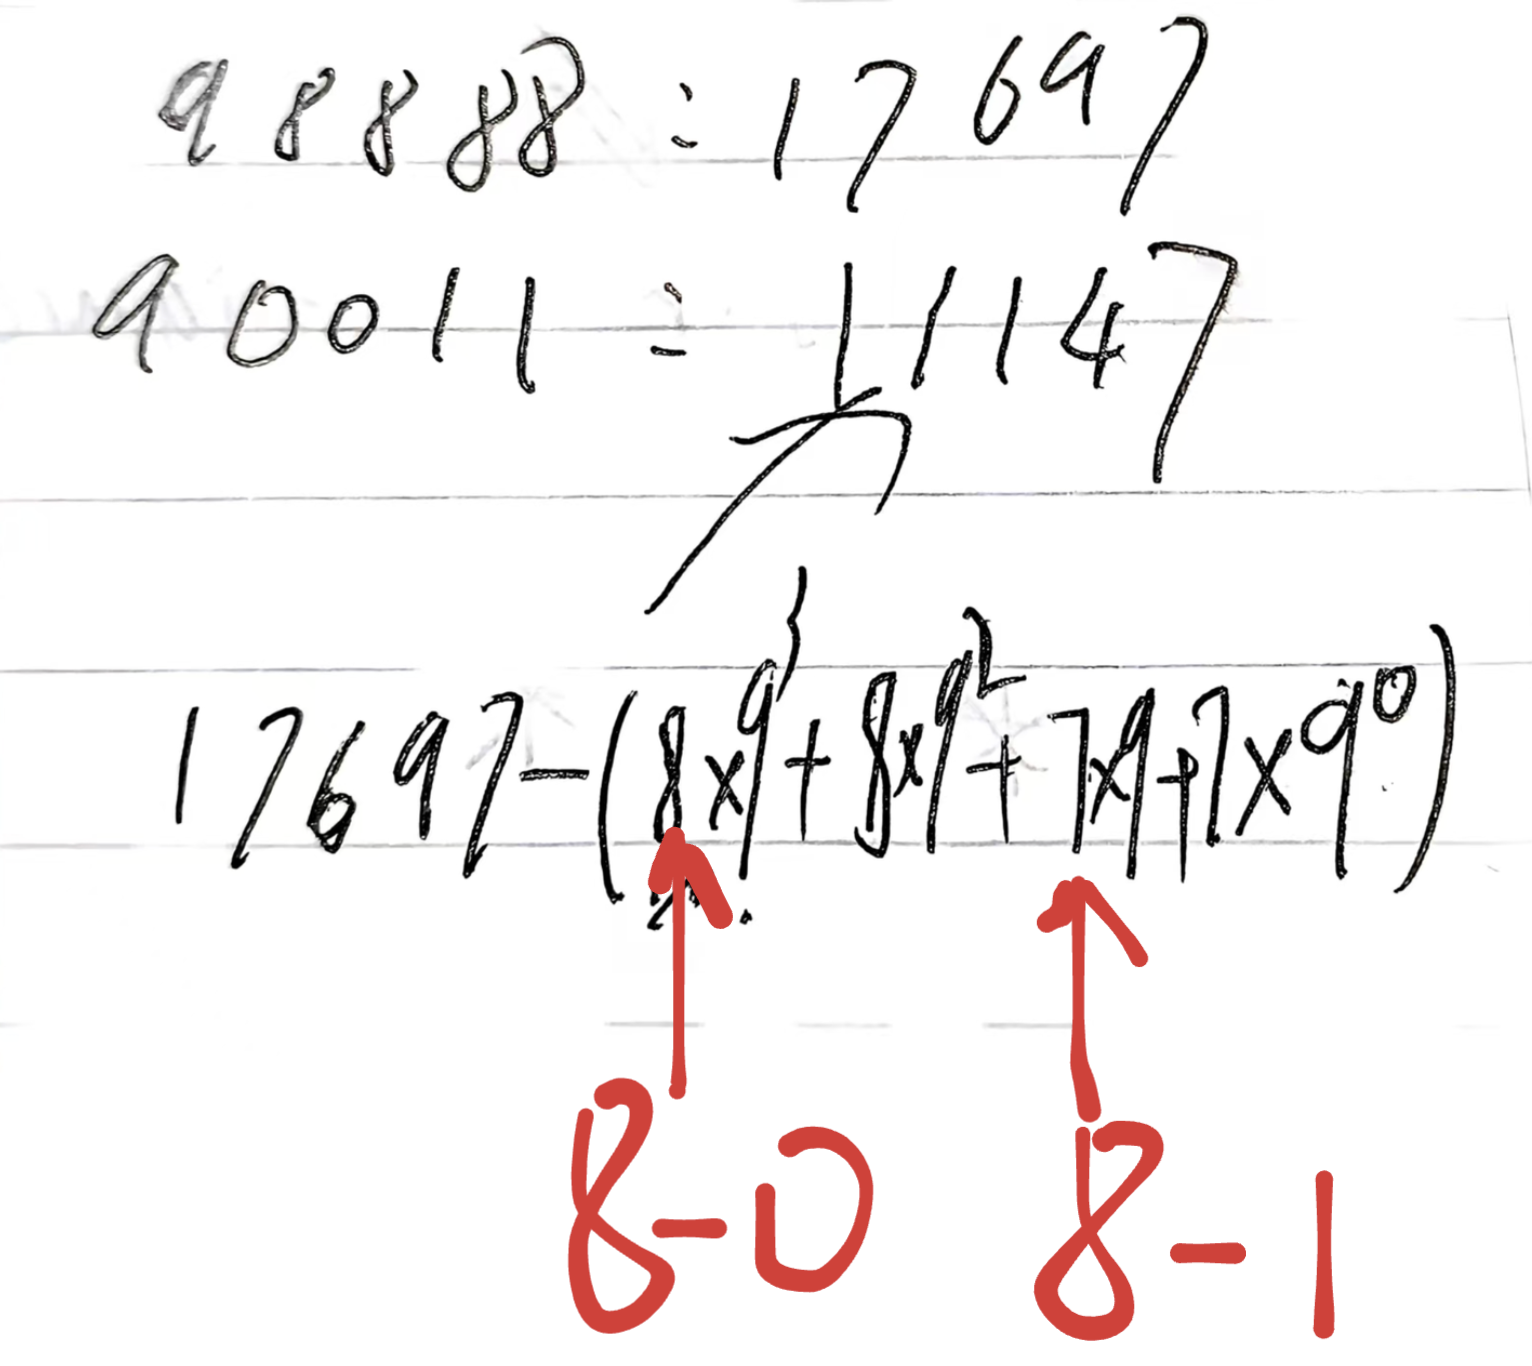 98888 = 17697
90011 = 11147
17697-(8x9³+8x9²+7x9+7x9⁰)
8-0 8-1